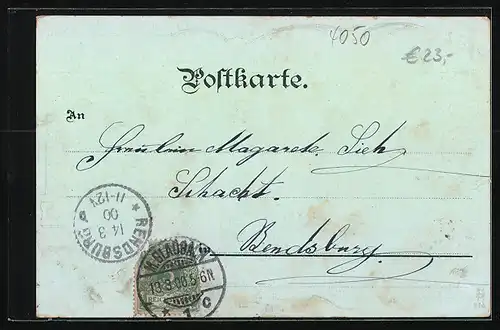 4050
€23,-
Postkarte.
An
Fräulein Magarete Sieh
Schacht.
in
Rendsburg.
* RENDSBURG *
14 3
00
11-12V
13.3.00.5-6N
* 1 c